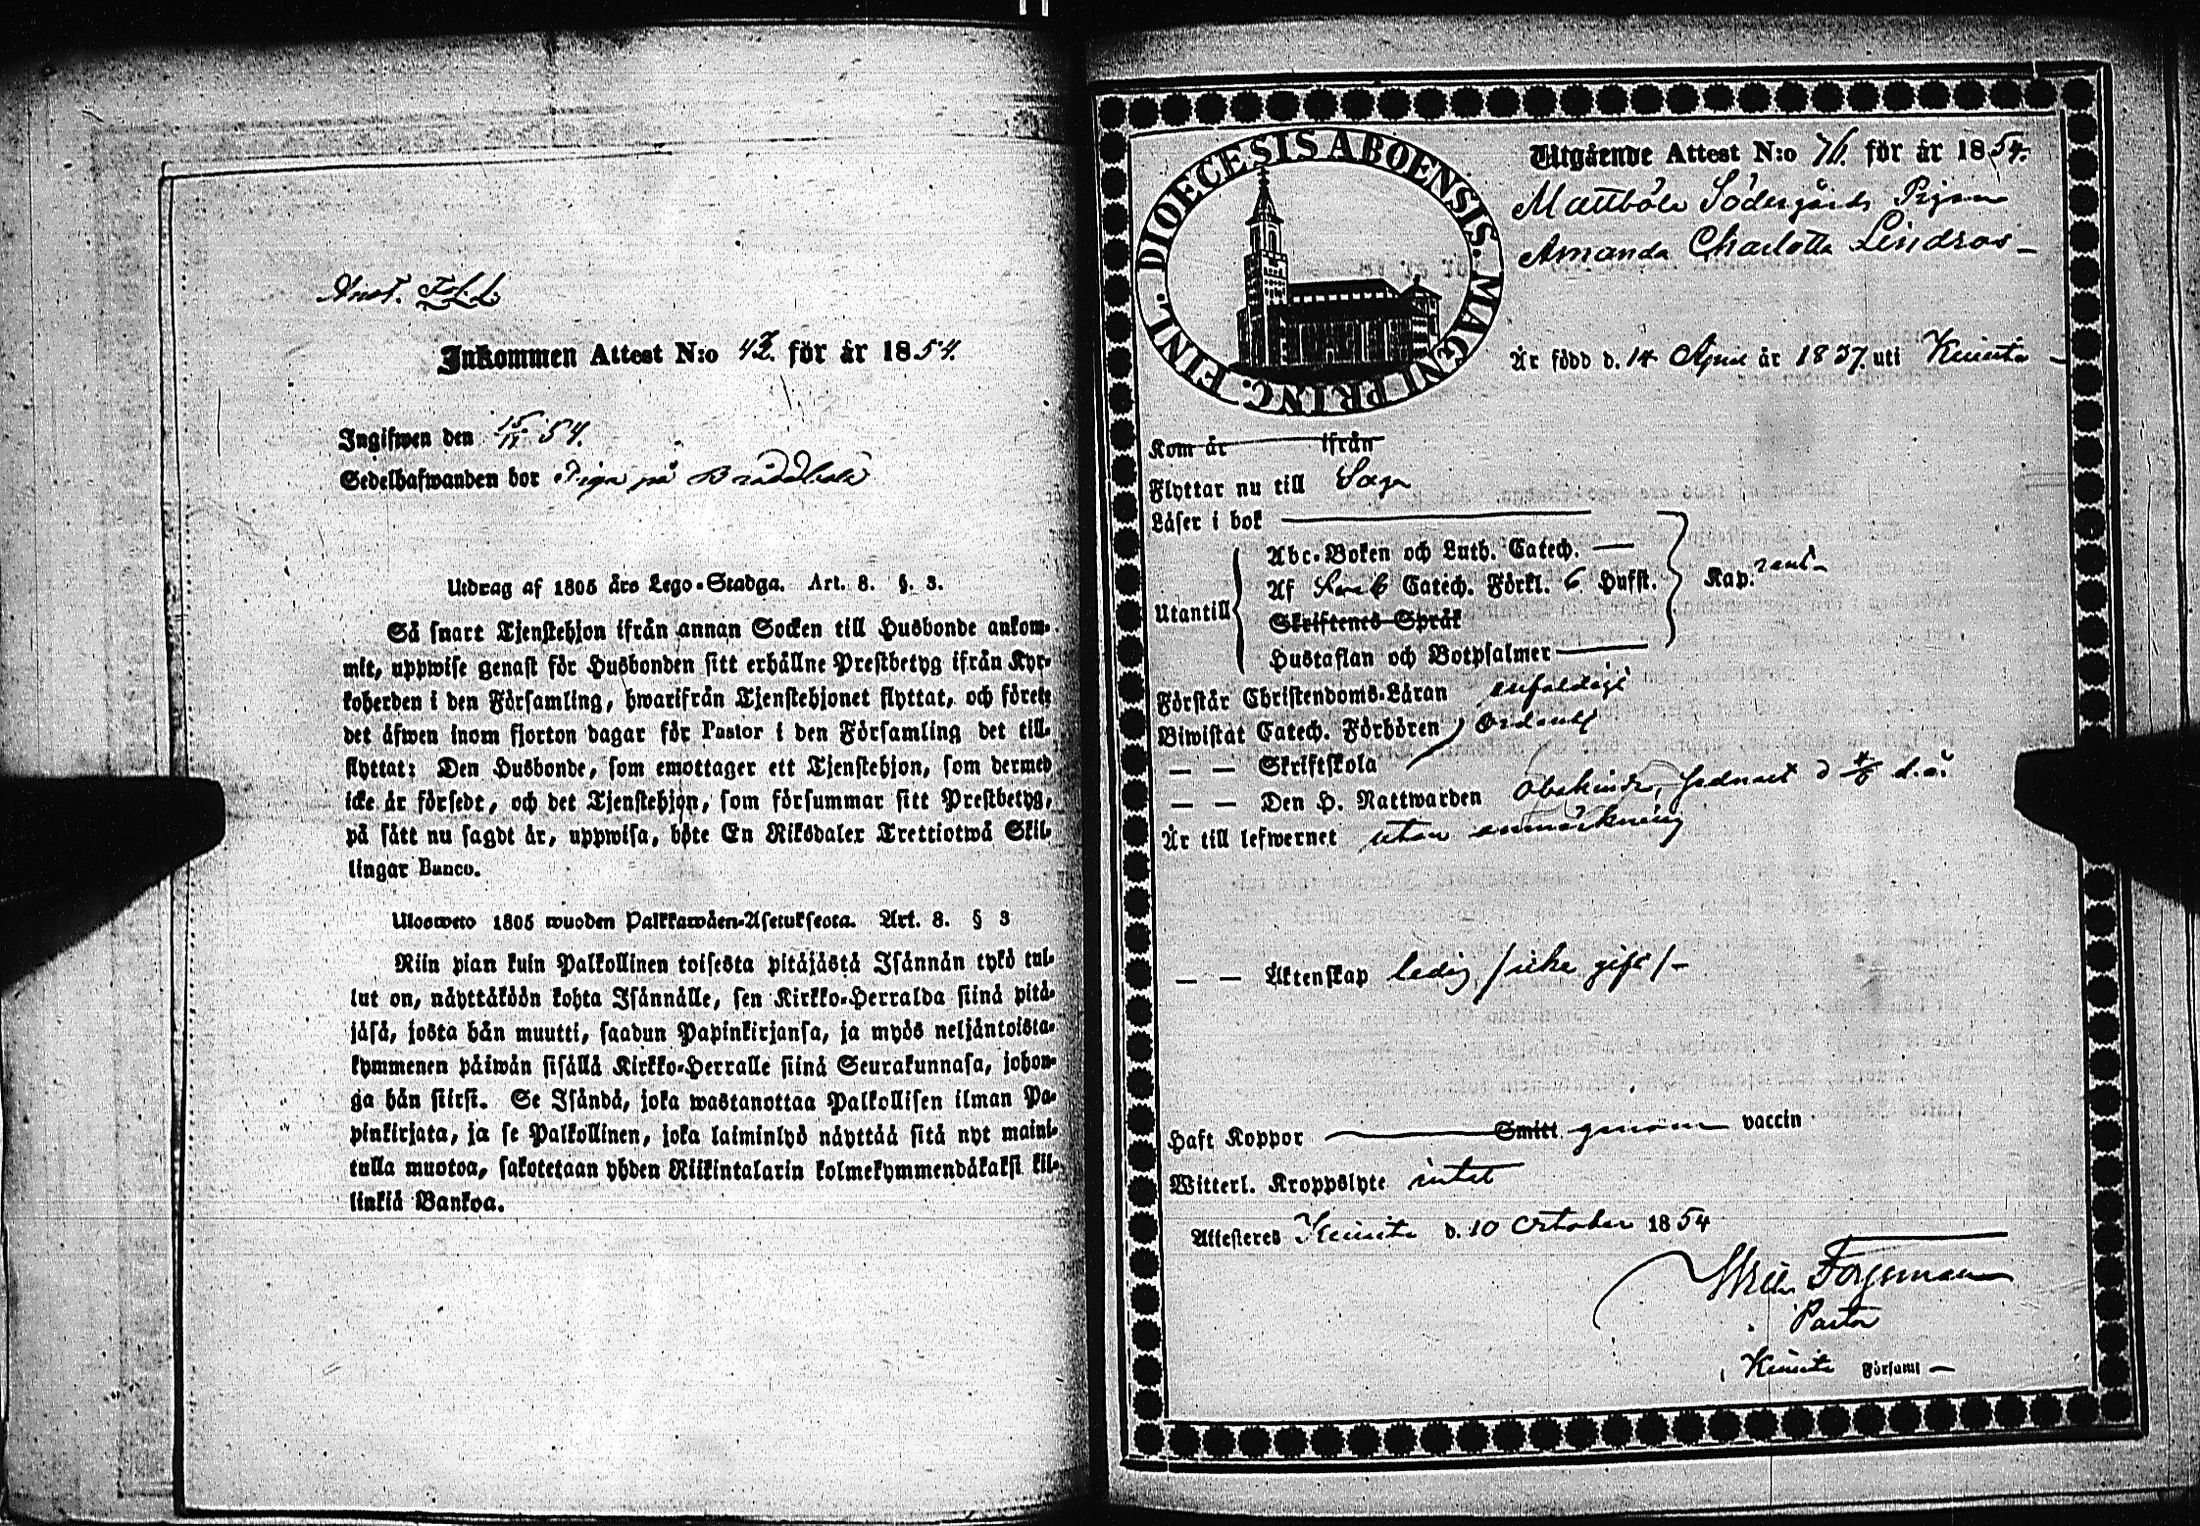 Inkommen Attest N:o 42. för år 1854.
Ingifwen den 15/11 54.
Sedelhafwanden bor Piga på
Utdrag af 1805 års Lego-Stadga. Art. 8. §. 3.
Så snart Tjenstehjon ifrån annan Socken till Husbonde ankom-
mit, uppwise genast för Husbonden sitt erhållne Prestbetyg ifrån Kyr-
koherden i den Församling, hwarifrån Tjenstehjonet flyttat, och förete
det äfwen inom fjorton dagar för Pastor i den Församling det till-
flyttat: Den Husbonde, som emottager ett Tjenstehjon, som dermed
icke är försedt, och det Tjenstehjon, som försummar sitt Prestbetyg,
på sätt nu sagdt är, uppwisa, böte En Riksdaler Trettiotwå Skil-
lingar Banco.
Ulosweto 1805 wuoden Palkkawäen-Asetuksesta. Art. 8. § 3
Niin pian kuin Palkollinen toisesta pitäjästä Isännän tykö tul-
lut on, näyttäköön kohta Isännälle, sen Kirkko-Herralda siinä pitä-
jäsä, josta hän muutti, saadun Papinkirjansa, ja myös neljäntoista-
kymmenen päiwän sisällä Kirkko-Herralle siinä Seurakunnasa, johon-
ga hän siirsi. Se Isändä, joka wastanottaa Palkollisen ilman Pa-
pinkirjata, ja se Palkollinen, joka laiminlyö näyttää sitä nyt maini-
tulla muotoa, sakotetaan yhden Riikintalarin kolmekymmendäkaksi kil-
linkiä Bankoa.
DIOECESIS ABOENSIS. MAGNI PRINC. FINL.
Utgående Attest N:o 76. för år 1854.
Mattböle Södergårds Pigan
Amanda Charlotta Lindros
Är född d. 14 April år 1837. uti Kimito
Kom år ifrån
Flyttar nu till
Läser i bok
Abc-Boken och Luth. Catech.
Af Catech. Förkl. 6 Hufst.
Utantill
Kap.
Skriftenes Språk
Hustaflan och Botpsalmer
Förstår Christendoms-Läran enfaldigt
Biwistat Catech. Förhören ordentl
— — Skriftskola
— — Den H. Nattwarden obehindr. d d. å.
Är till lefwernet utan anmärkning
— — Äktenskap ledig /icke gift/
Haft Koppor Smitt genom vaccin
Witterl. Kroppslyte intet
Attesteres Kimito d. 10 October 1854
Pastor
i Kimito Församl